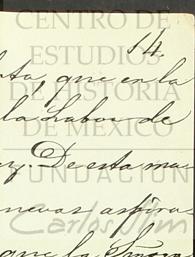 CENTRO DE
ESTUDIOS
DE HISTORIA
DE MEXICO
FUNDACIÓN
Carlos Slim
14.
ta, que en la
la Labor de
De esta ma-
nuevas aspira-
que la Señora